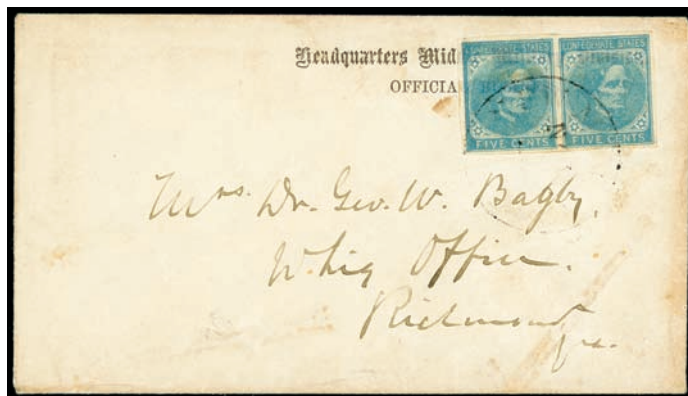 Headquarters Mid
OFFICIA
CONFEDERATE STATES
CONFEDERATE STATES
FIVE CENTS
FIVE CENTS
Mrs. Dr. Geo. W. Bagby,
Whig Office.
Richmond
Va.